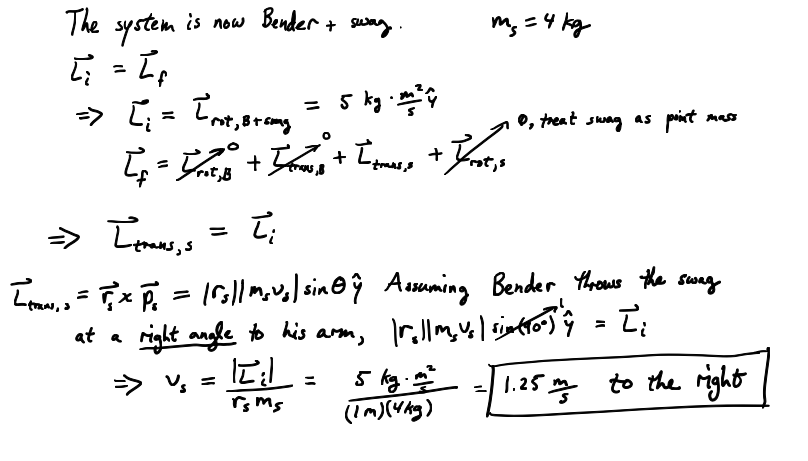 The system is now Bender + swag. m_s = 4 kg
L⃗_i = L⃗_f
⇒ L⃗_i = L⃗_rot, B+swag = 5 kg · m²/s ŷ
0, treat swag as point mass
L⃗_f = L⃗_rot,B 0 + L⃗_trans,B 0 + L⃗_trans,s + L⃗_rot,s
⇒ L⃗_trans,s = L⃗_i
L⃗_trans,s = r⃗_s × p⃗_s = |r_s||m_s v_s| sin θ ŷ Assuming Bender throws the swag
at a right angle to his arm, |r_s||m_s v_s| sin(90°) 1 ŷ = L⃗_i
⇒ v_s = |L⃗_i| / r_s m_s = 5 kg · m²/s / (1m)(4kg) = 1.25 m/s to the right